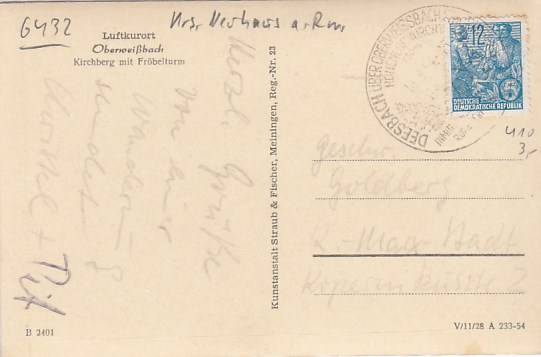 6432
Krs. Neuhaus a. Rwg.
Luftkurort
Oberweißbach
Kirchberg mit Fröbelturm
Herzl. Grüße
von
Wander
sendet
+ Pit
Kunstanstalt Straub & Fischer, Meiningen, Reg.-Nr. 23
DEESBACH ÜBER OBERWEISSBACH
12
5
DEUTSCHE
DEMOKRATISCHE REPUBLIK
410
3,-
Geschw.
Goldberg
K.-Marx-Stadt
Kopernikusstr. 2
B 2401
V/11/28 A 233-54